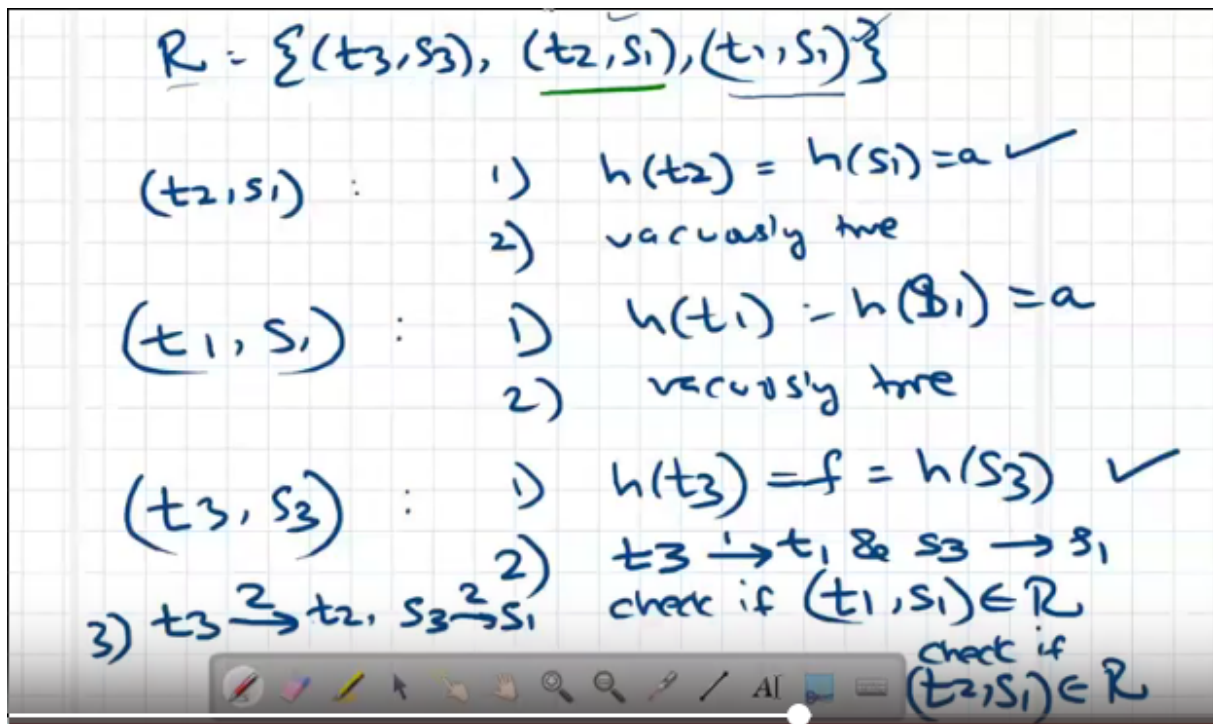 R = {(t3,s3), (t2,s1),(t1,s1)}
(t2,s1) : 1) h(t2) = h(s1) = a ✓
2) vacuously true
(t1, s1) : 1) h(t1) = h(s1) = a
2) vacuously true
(t3, s3) : 1) h(t3) = f = h(s3) ✓
2) t3 →1 t1 & s3 → s1
check if (t1,s1) ∈ R
3) t3 →2 t2, s3 →2 s1
check if
(t2,s1) ∈ R
AI